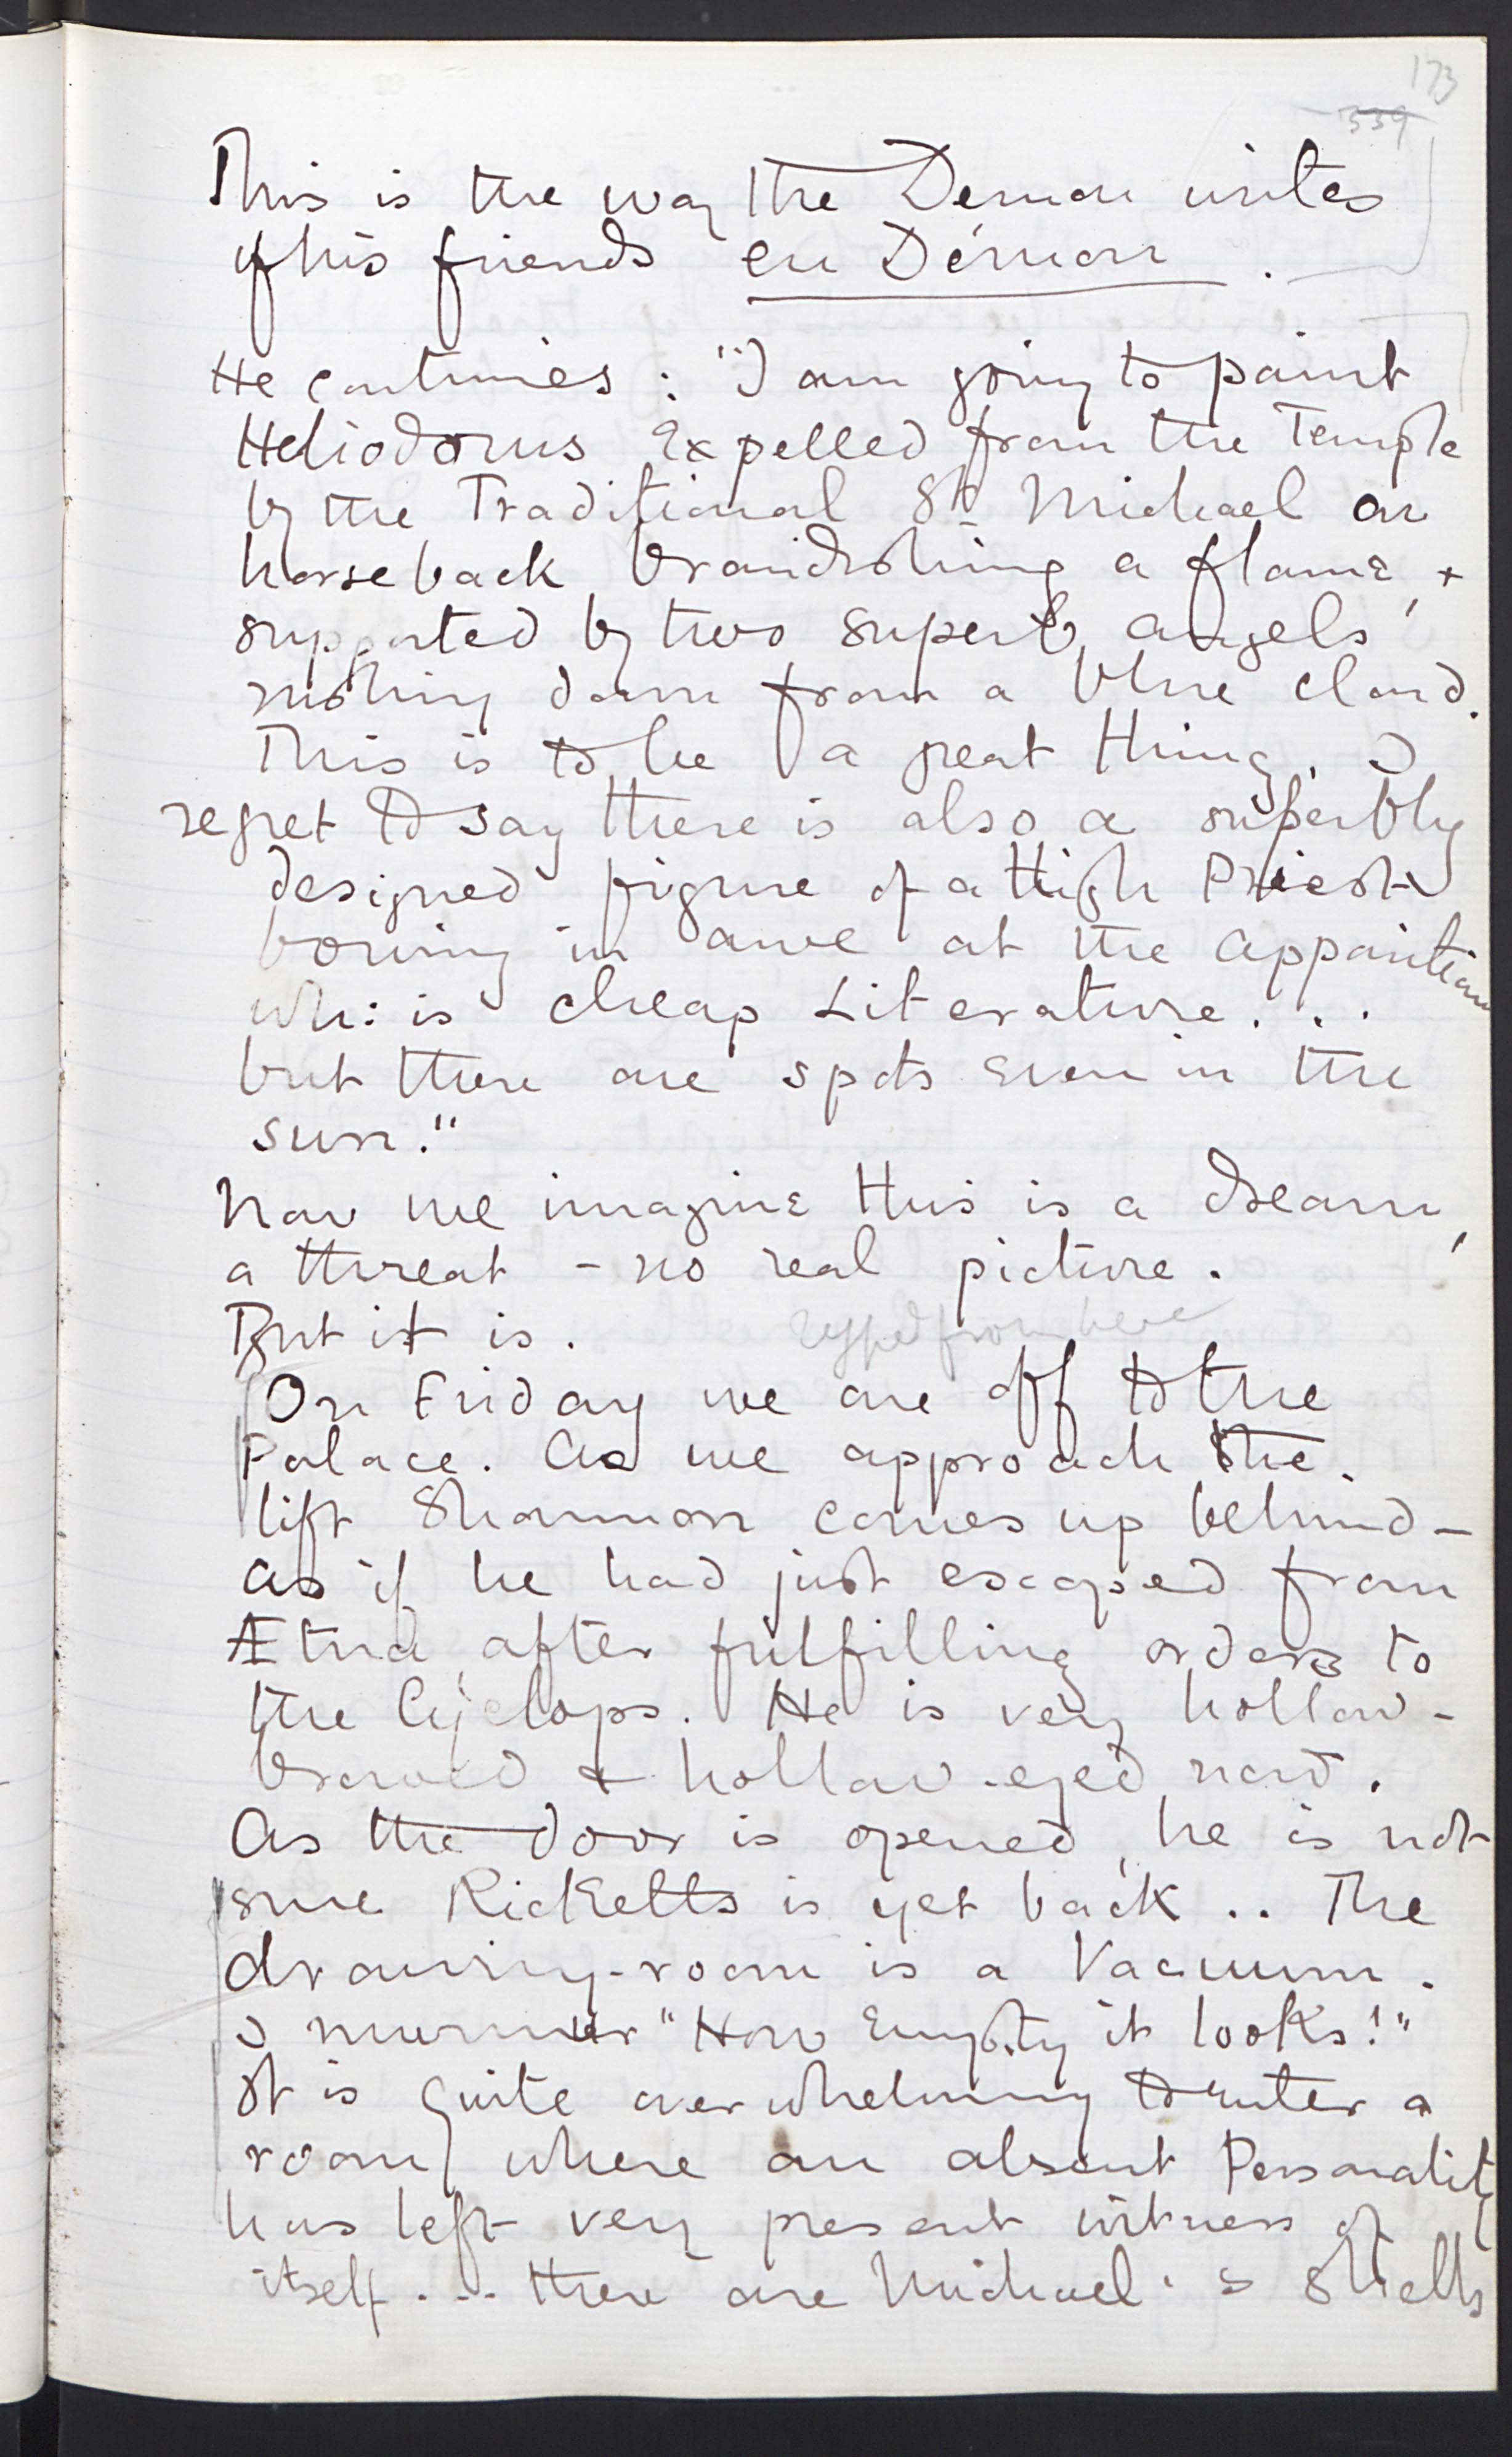 173
339
This is the way the Demon writes
of his friends en Démon.
He continues: "I am going to paint
Heliodorus Expelled from the Temple
by the Traditional St Michael on
horseback brandishing a flame, +
supported by two superb angels
rushing down from a blue cloud.
This is to be a great thing. I
regret to say there is also a superbly
designed figure of a High Priest
bowing in awe at the apparition
wh: is cheap Literature...
but there are spots even in the
sun."
Now we imagine this is a dream,
a threat - no real picture.
But it is.
typed from here
On Friday we are off to the
Palace. As we approach the
lift Shannon comes up behind -
as if he had just escaped from
Ætna after fulfilling orders to
the Cyclops. He is very hollow-
browed & hollow-eyed now.
As the door is opened, he is not
sure Ricketts is yet back.. The
drawing-room is a Vacuum.
I murmur "How Empty it looks!"
It is quite overwhelming to enter a
room where an absent Personality
has left very present witness of
itself... there are Michael's Shells